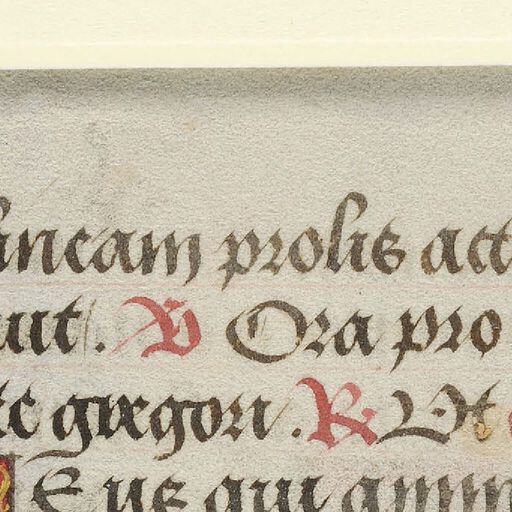 uncam prolis act
uit. V Ora pro
te gregori. R Ut
Eus qui anim